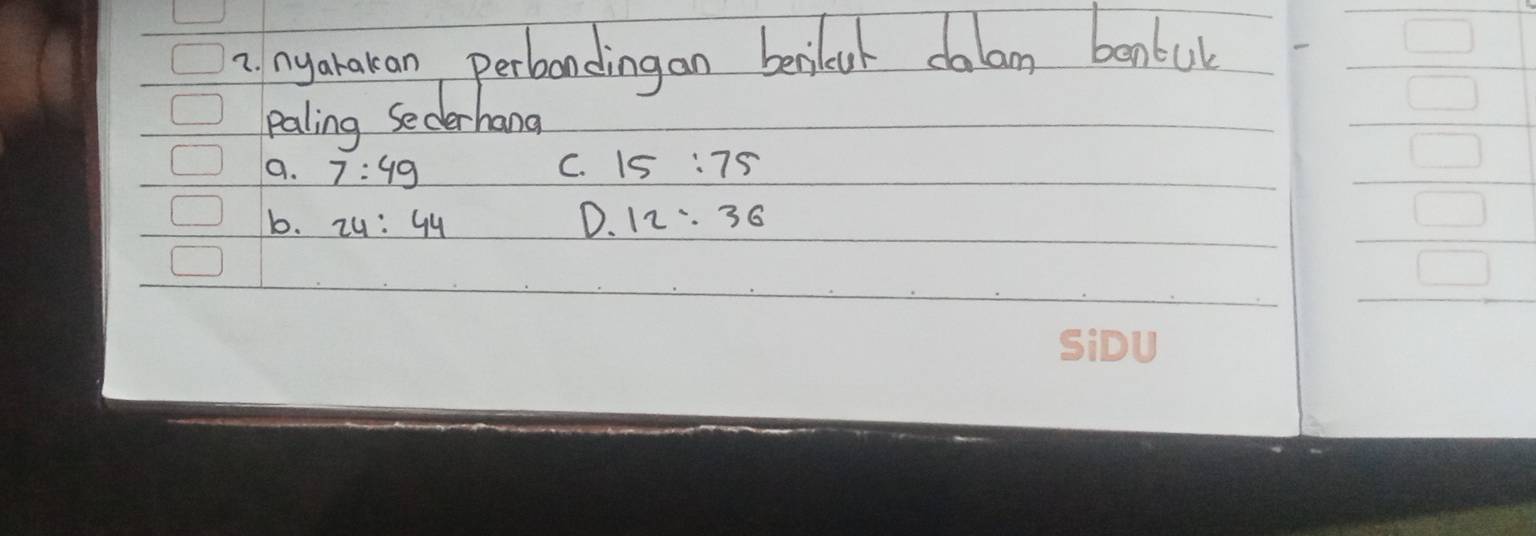 2. nyatakan perbandingan berikut dalam bentuk
paling sederhana
a. 7:49 C. 15 :75
b. 24: 44 D. 12 : 36
SiDU